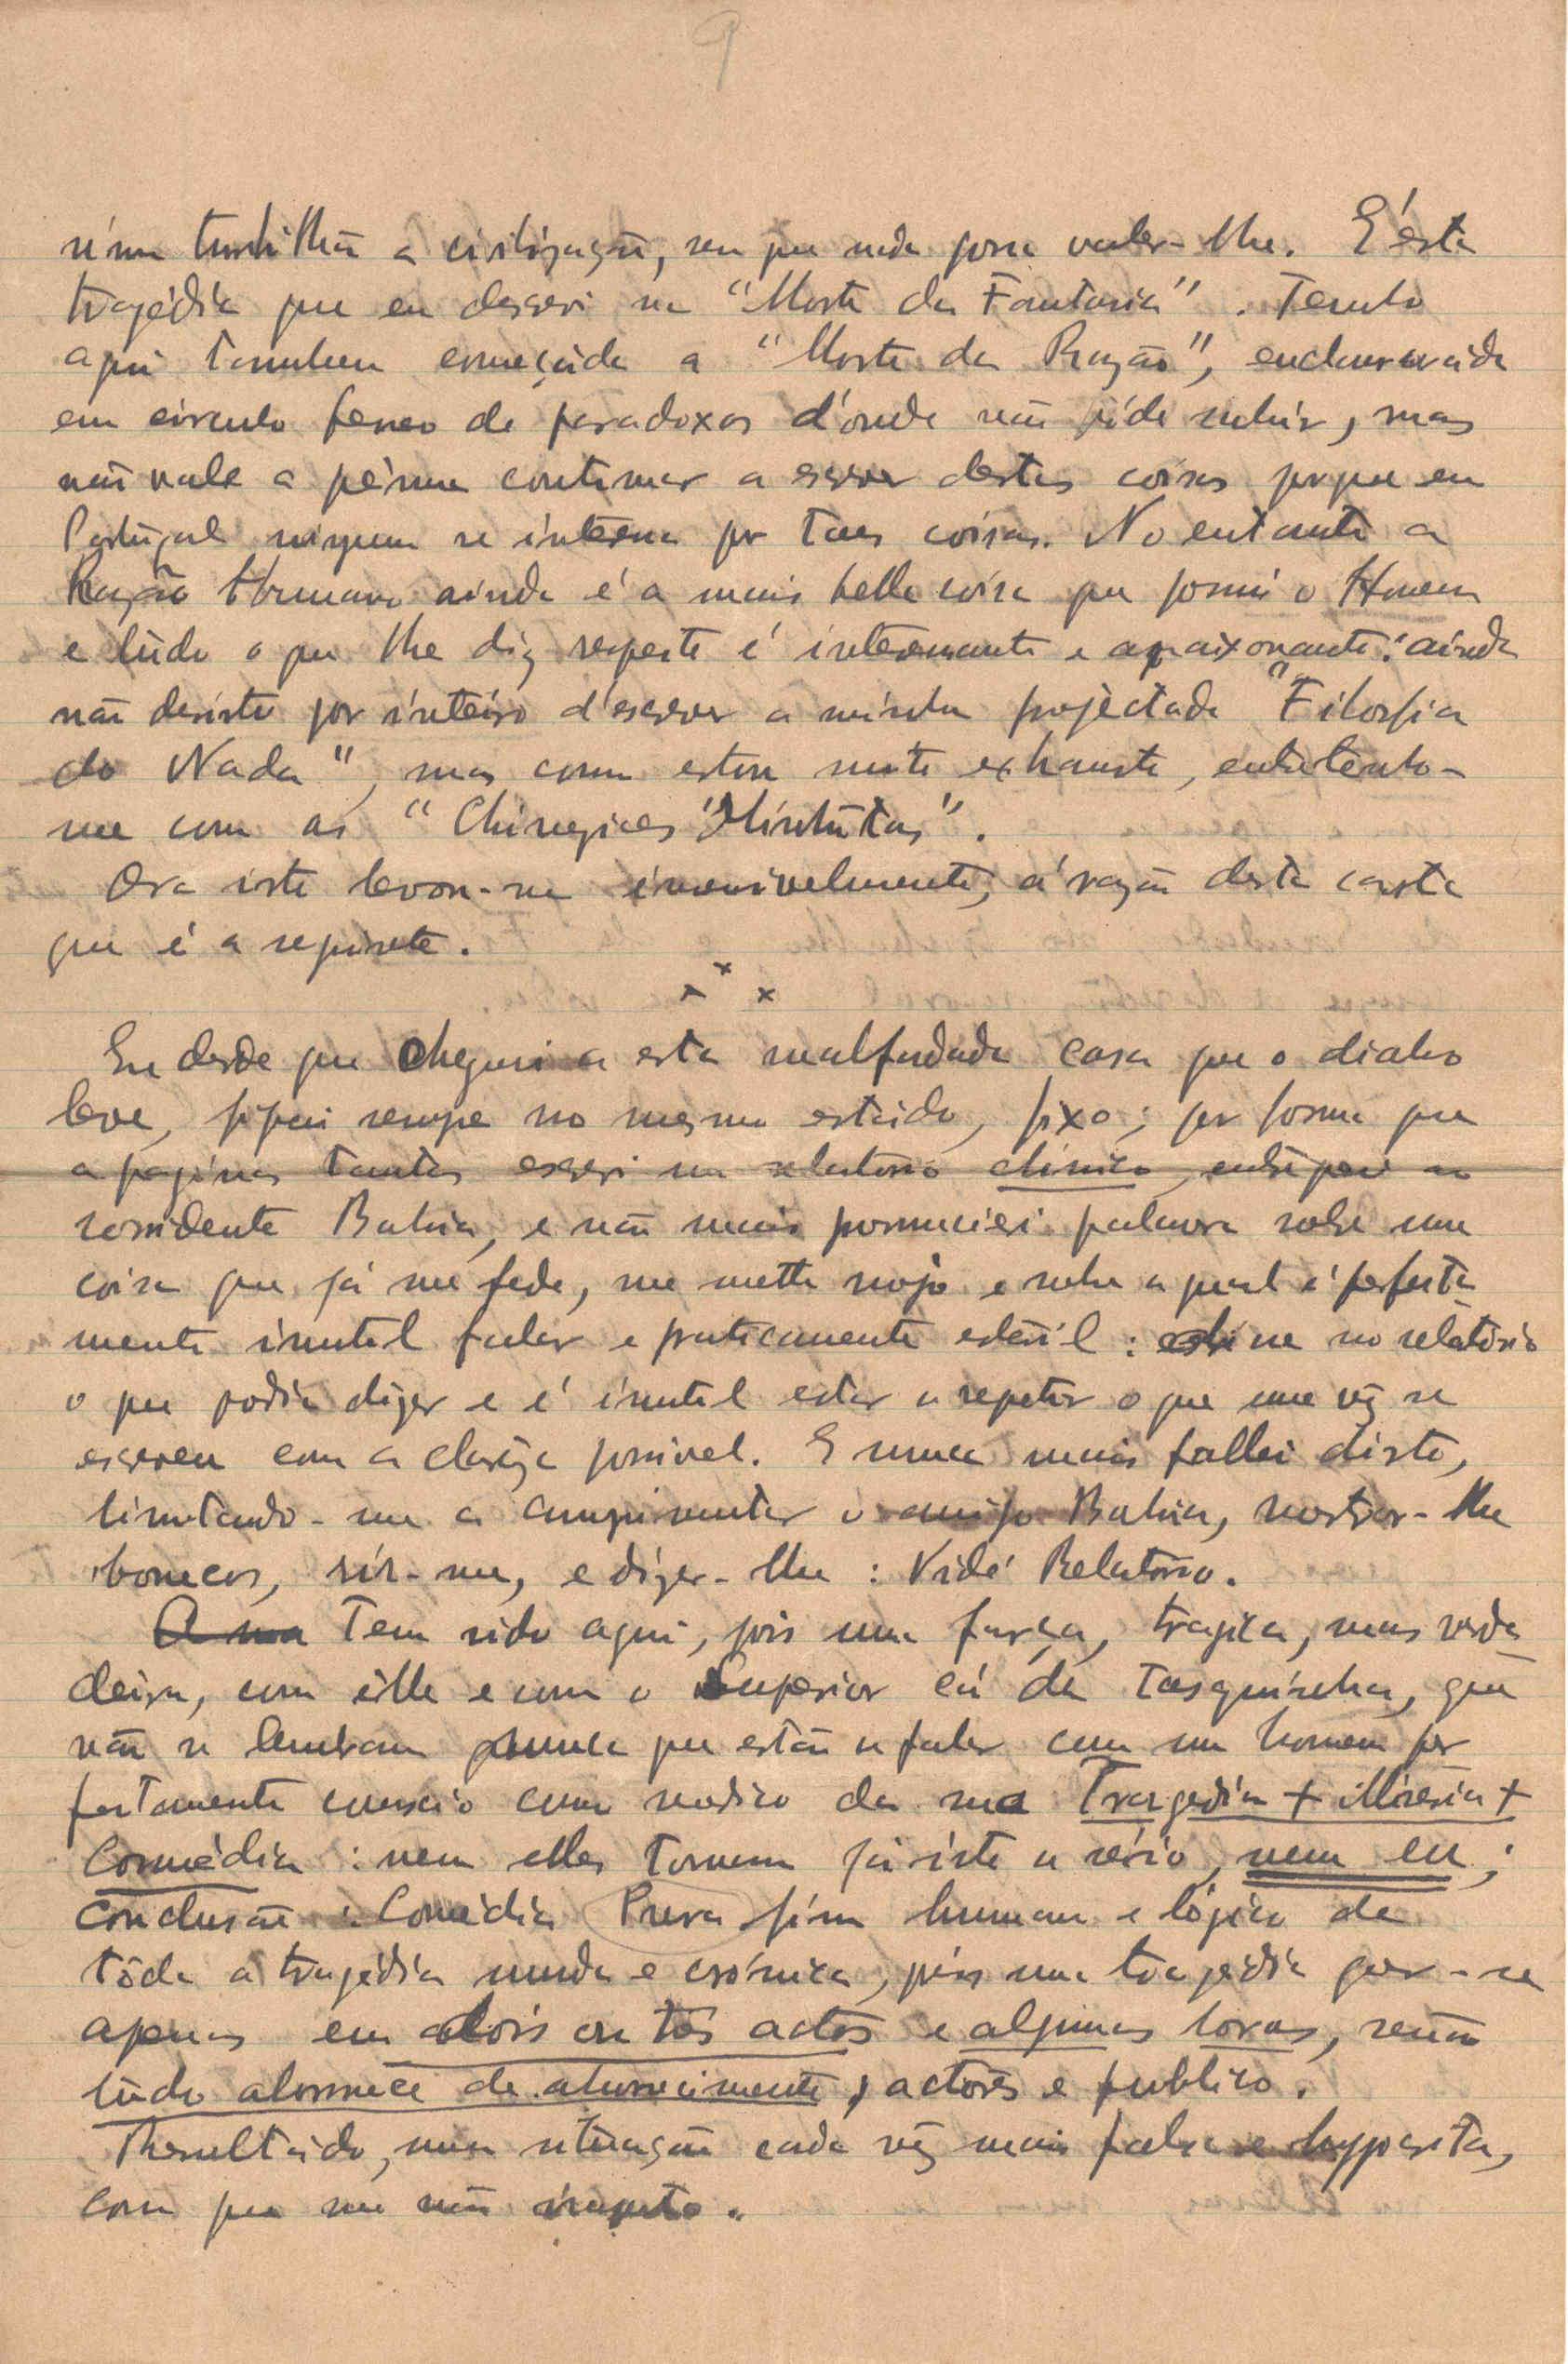 9
n'um turbilhão a civilização, sem que nada possa valer-lhe. E' ésta
tragédia que eu descrevi na "Morte da Fantasia". Tenho
aqui tambem começáda a "Morte da Razão", enclausurada
em circulo ferreo de paradoxos d'onde não póde sahír, mas
não vale a pêna continuar a escrever destas coisas porque em
Portugal ninguem se interessa por taes coisas. No entanto a
Razão Humana ainda é a mais bella coisa que possui o Homem
e túdo o que lhe diz respeito é interessante e apaixonante: ainda
não desisti por inteiro d'escrever a minha projéctada "Filosofia
do Nada", mas como estou muito exhausto, entretenho-
me com as "Chinezices Minhótas".
Ora isto levou-me insensivelmente, á razão desta carta
que é a seguinte.
x x x
Eu desde que cheguei a esta malfadada casa que o diabo
leve, fiquei sempre no mesmo estádo, fixo; por forma que
a paginas tantas escrevi um relatorio clinico, entreguei-o ao
residente Bahia, e não mais pronunciei palavra sobre uma
coisa que já me fede, me mette nojo e sobre a qual é perfeita
mente inutil falar e praticamente estéril: está no relatório
o que podia dizer e é inutil estar a repetir o que uma vez se
escreveu com a claréza possivel. E nunca mais fallei disto,
limitando-me a cumprimentar o amigo Bahia, mostrar-lhe
bonecos, rir-me, e dizer-lhe: Vidé Relatório.
Tem sido aqui, pois uma farça, tragica, mas verda
deira, com êlle e com o Superior cá da Tasquinha, que
não se lembram nunca que estão a falar com um homem per
feitamente conscio como medico da sua Tragedia + Miséria +
Comédia: nem elles tomam já isto a sério, nem eu;
conclusão: Comédia Pura fim humano e lógico de
tôda a tragédia muda e crónica, pois uma tragédia quer-se
apenas em dois ou três actos e algumas horas, senão
túdo adormece de aborrecimento, actores e publico.
Resultádo, uma situação cada vêz mais falsa e hyppocrita,
com que me não